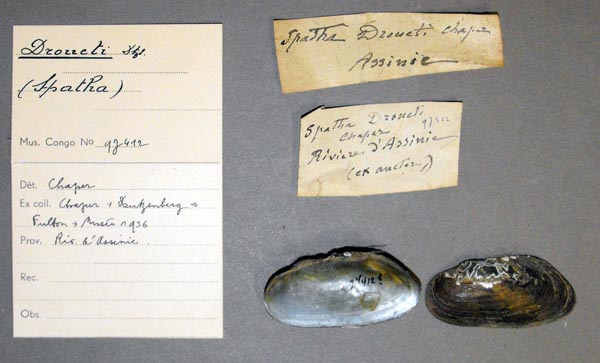 Droueti
(Spatha)
Mus. Congo No 97412
Dét. Chaper
Ex coll. Chaper + Dautzenberg
Fulton + Musée 1936
Prov. Riv. d'Assinie
Rec.
Obs.
Spatha Droueti Chaper
Assinie
Spatha Droueti
Chaper 97412
Rivières d'Assinie
(ex auctore)